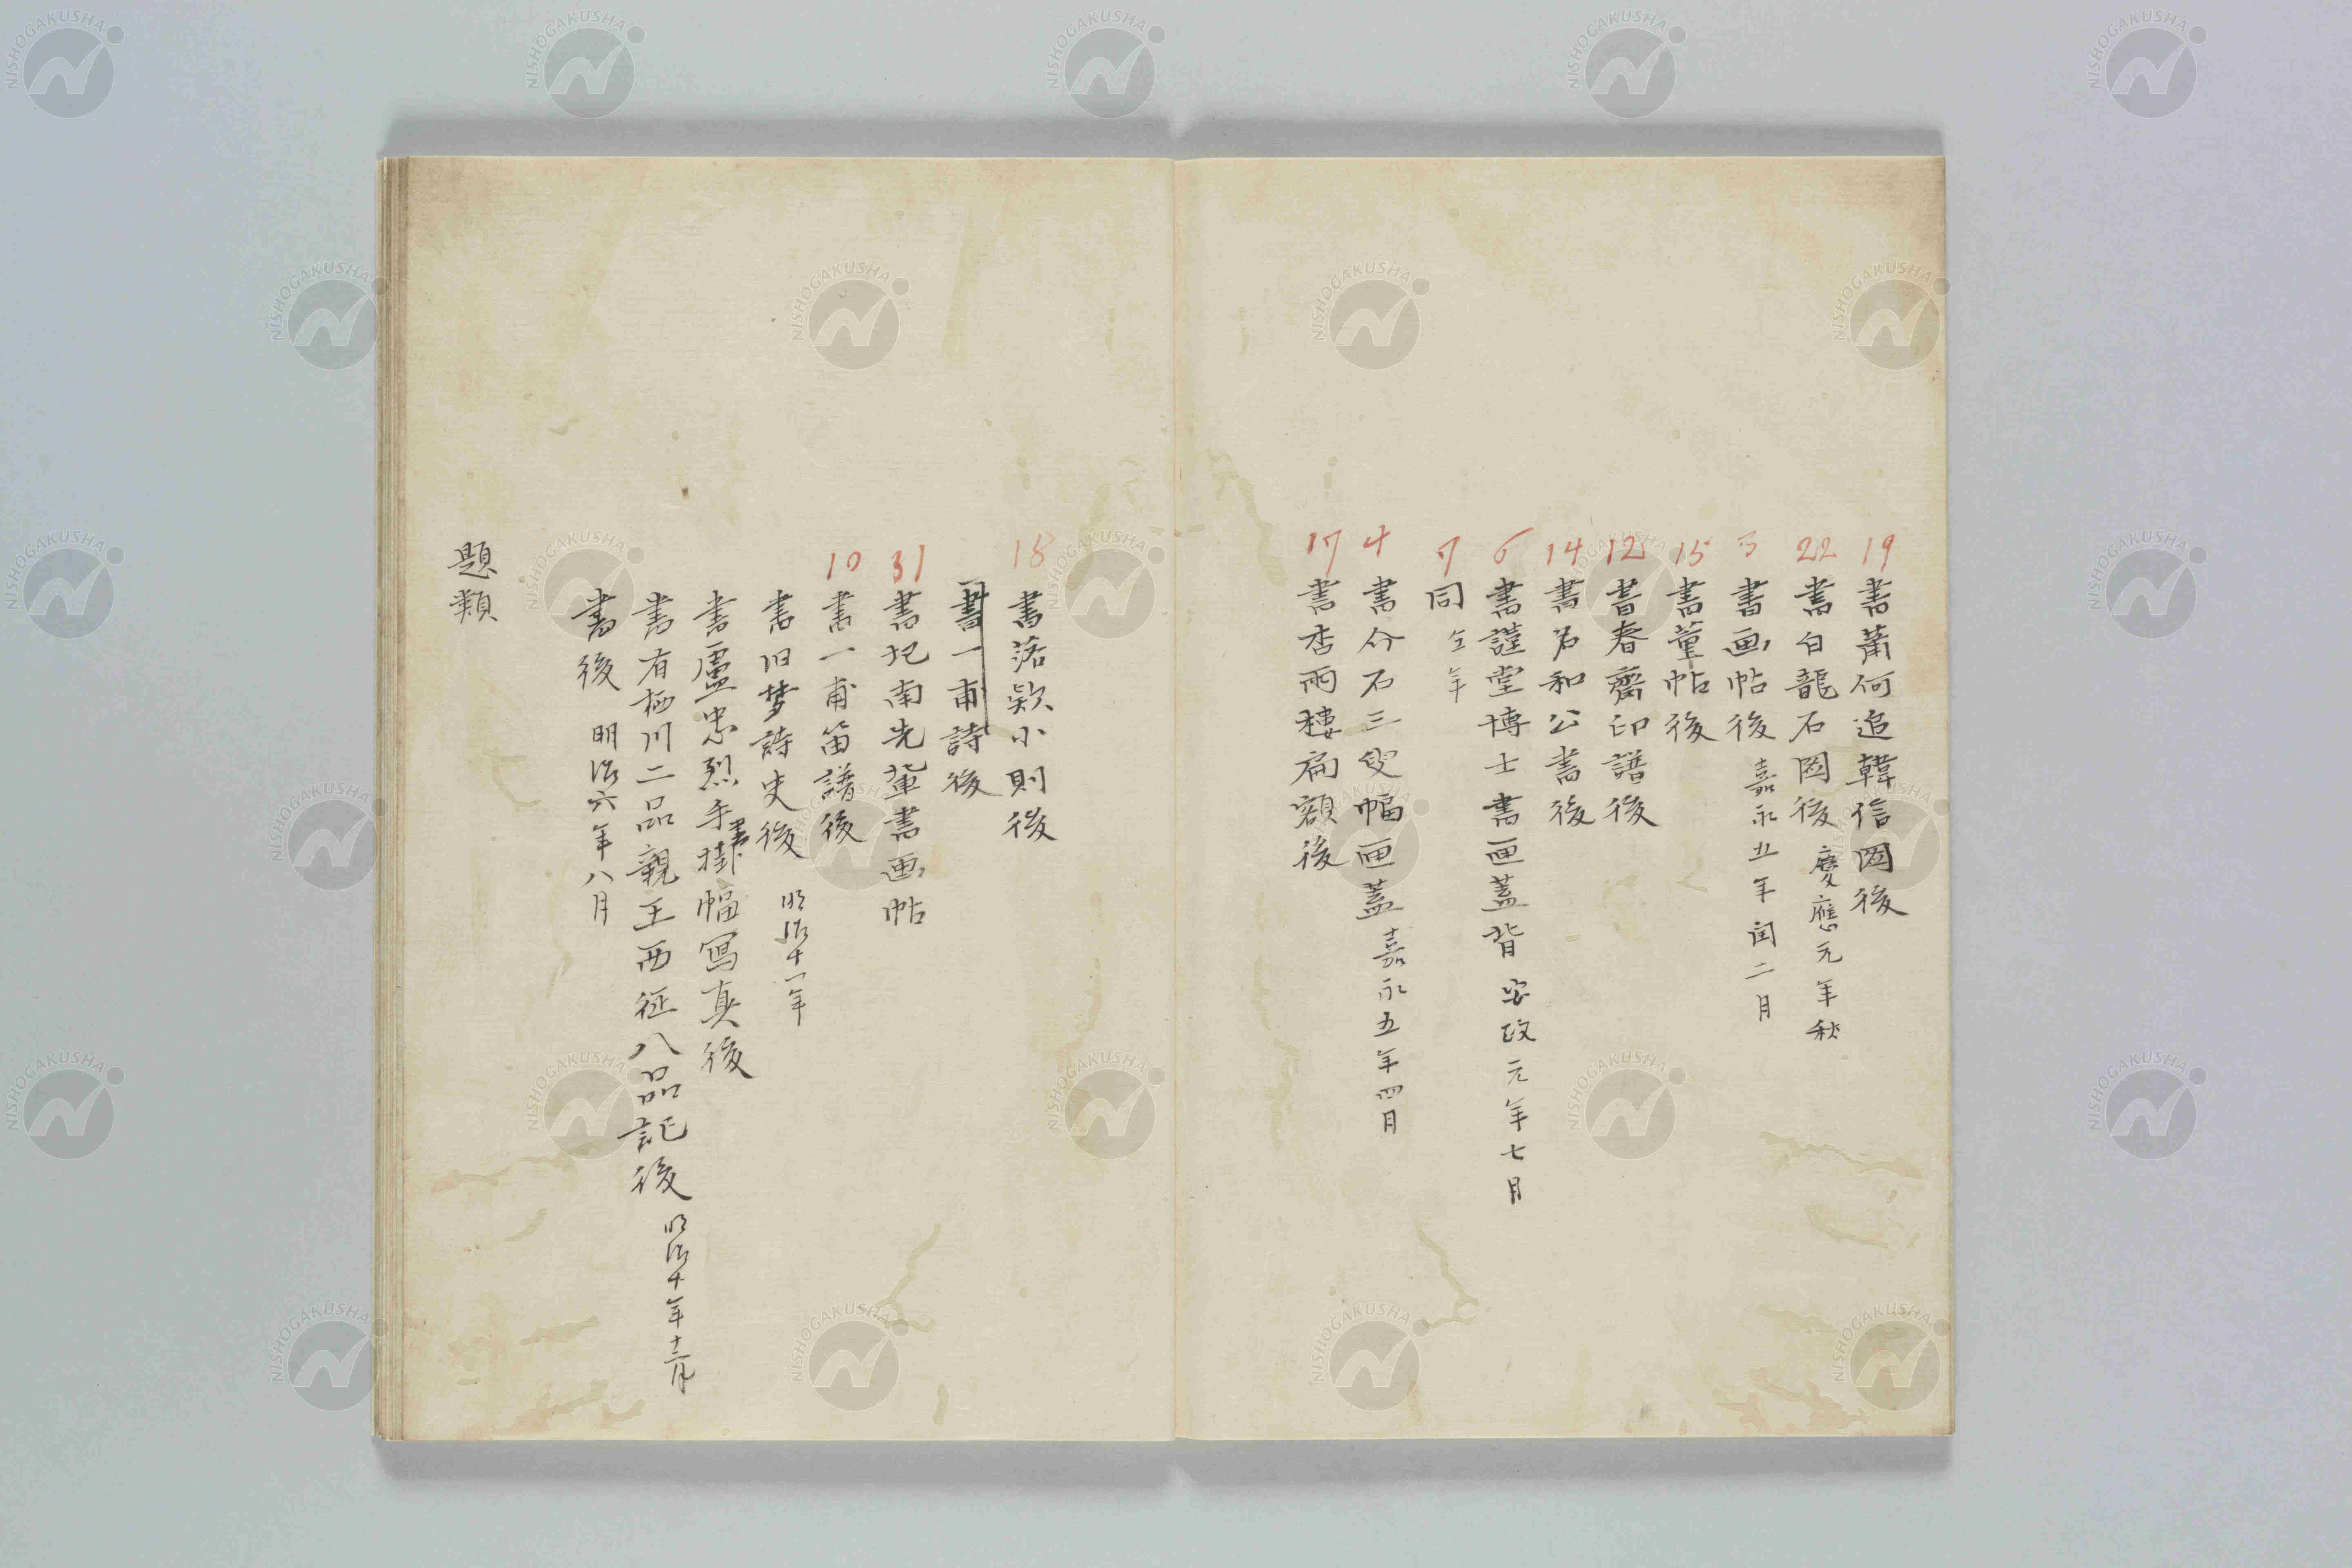 19 書蕭何追韓信図後
22 書白龍石図後 慶應元年秋
3 書画帖後 嘉永五年閏二月
15 書董帖後
12 書春齋印譜後
14 書名和公書後
6 書謹堂博士書画蓋背 安政元年七月
7 同 仝年
4 書介石三叟幅画蓋 嘉永五年四月
17 書杏雨樓扁額後
18 書落款小則後
書一甫詩後
31 書紀南先輩書画帖
10 書一甫笛譜後
書旧梦詩史後 明治十一年
書盧忠烈手書掛幅寫真後
書有栖川二品親王西征八品記後 明治十年十二月
書後 明治六年八月
題類
NISHOGAKUSHA